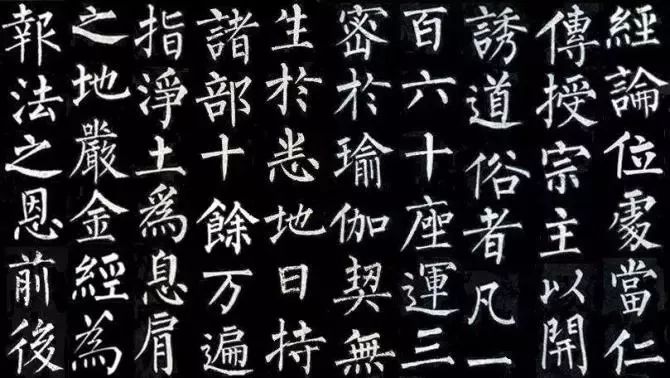 經論位處當仁
傳授宗主以開
誘道俗者凡一
百六十座運三
密於瑜伽契無
生於悉地日持
諸部十餘万遍
指淨土為息肩
之地嚴金經為
報法之恩前後